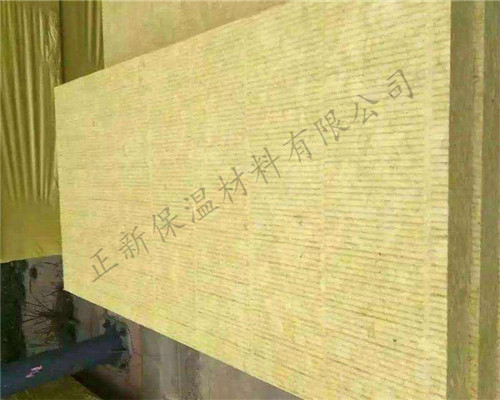 正新保温材料有限公司